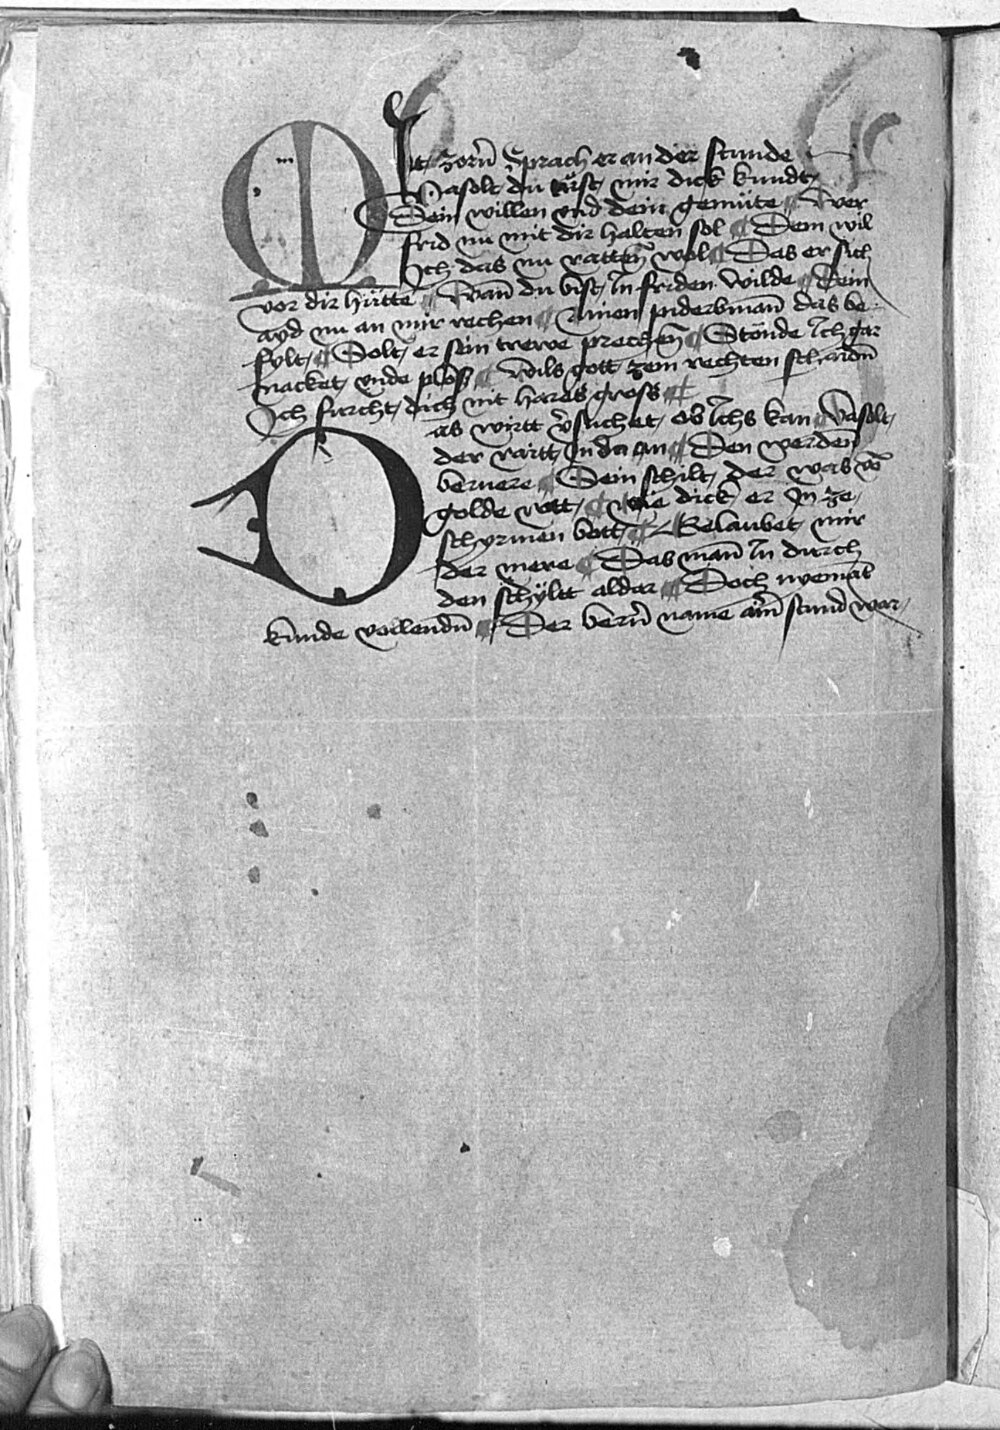 MIt zorñ sprach er an der stunde
Vasolt du tůst mir dick kundt
Dein willen vnd dein gemüte ¶ Wer
frid nu mit dir halten sol ¶ Dem wil
Ich das nu ratten wol ¶ Das er sich
vor dir hütte ¶ Wañ du bist In friden wilde ¶ Dein
ayd nu an mir rechen ¶ Ainen piderbmañ das be
fylt ¶ Solt er sein trewe prechen ¶ Stönde Ich gar
nacket vnde ploß ¶ Wils gott zem rechten
Ich furcht dich nit hares gross ¶
Das wirtt v̄suchet ob Ichs kan ¶ Vasolt
der rartt In da an ¶ Den werden
bernere ¶ Sein schilt der was vō
golde rott ¶ Wie dick er In ze
schyrmen bott ¶ Gelaubet mir
der mere ¶ Das mañ In durch
den schyltt aldar ¶ Doch nyemāt
kunde vollendñ ¶ Der berñ name stund war